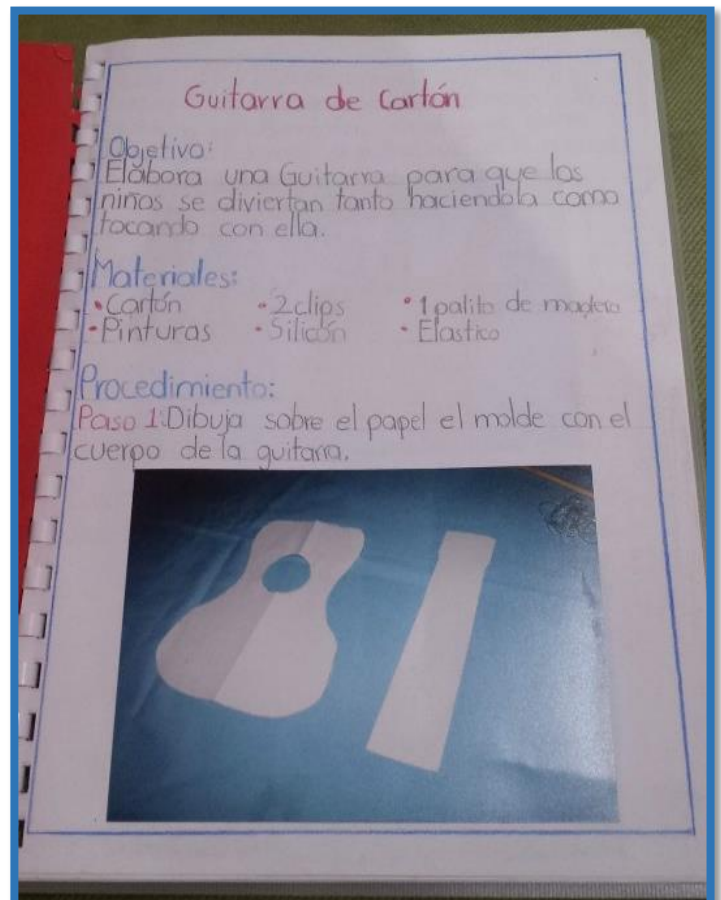 Guitarra de Cartón
Objetivo:
Elabora una Guitarra para que los
niños se diviertan tanto haciendola como
tocando con ella.
Materiales:
•Cartón •2 clips •1 palito de madera
•Pinturas •Silicón •Elastico
Procedimiento:
Paso 1:Dibuja sobre el papel el molde con el
cuerpo de la guitarra.